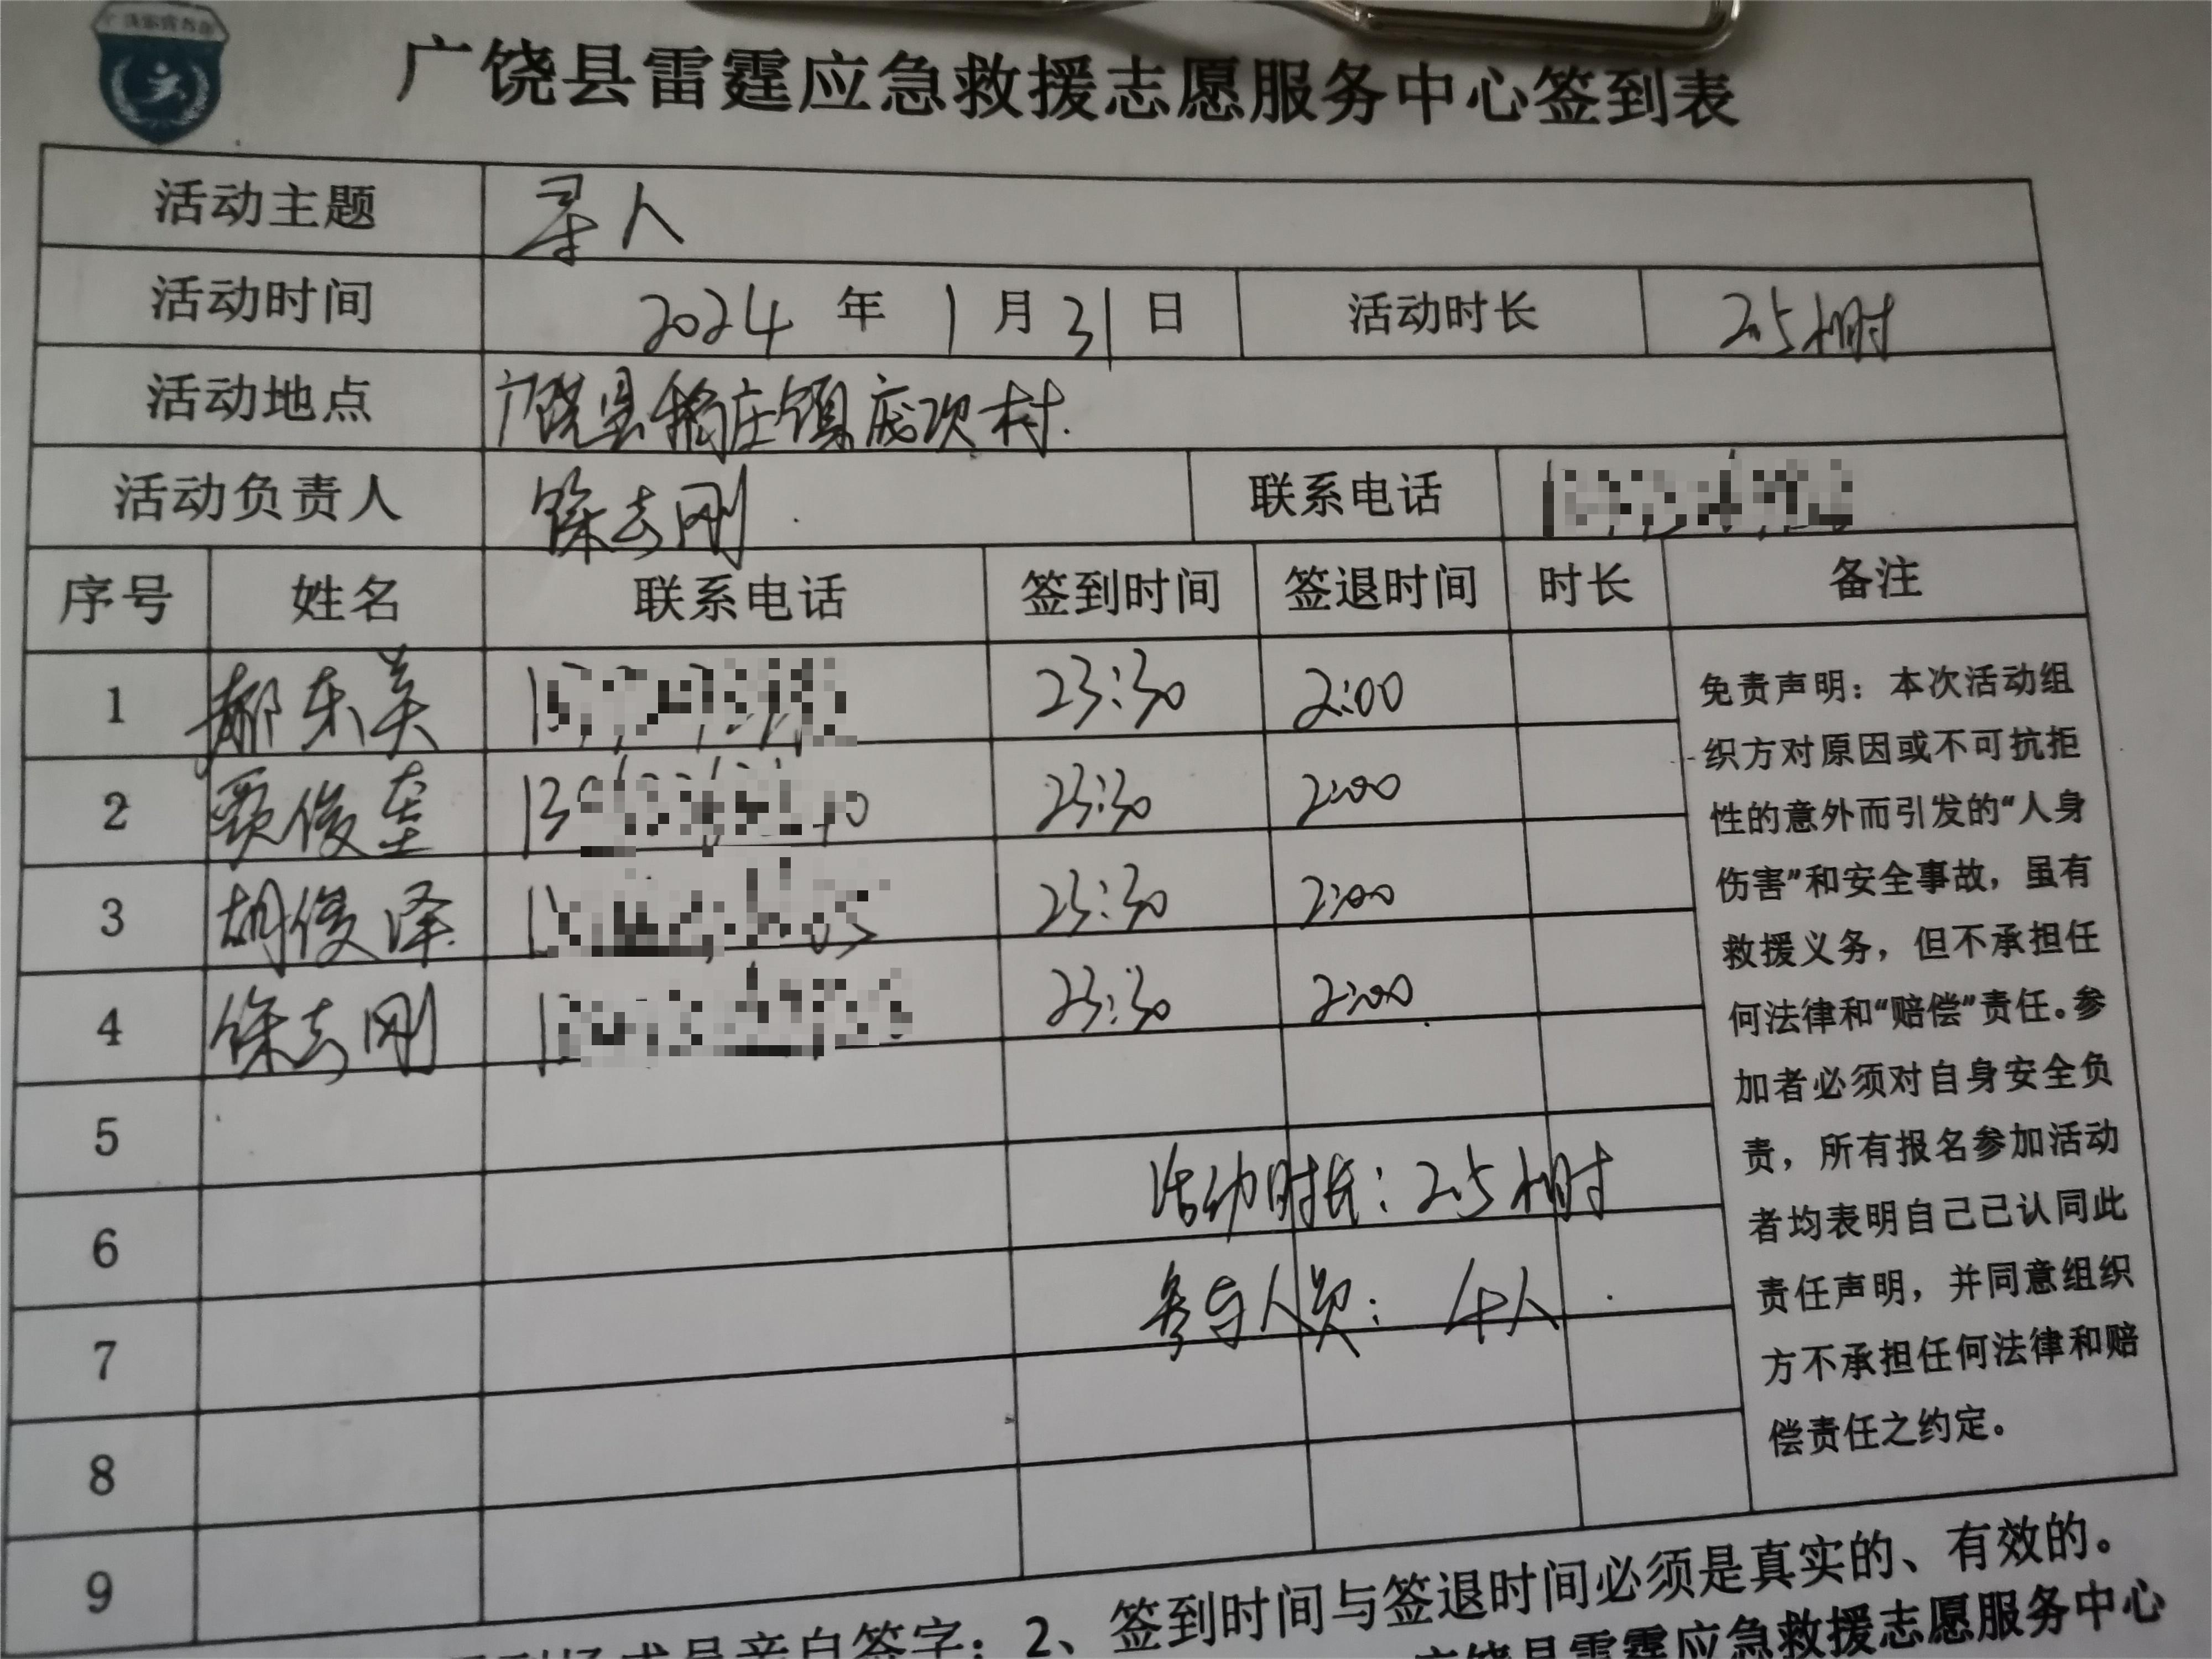 广饶县雷霆应急救援志愿服务中心签到表
活动主题 寻人
活动时间 2024 年 1 月 31 日 活动时长 2.5小时
活动地点 广饶县稻庄镇庞项村.
活动负责人 徐志刚 联系电话
序号 姓名 联系电话 签到时间 签退时间 时长 备注
1 郝东美 23:30 2:00
2 贾俊奎 23:30 2:00
3 胡俊泽 23:30 2:00
4 徐志刚 23:30 2:00
5
6
7
8
9
活动时长:2.5小时
参与人员: 4人
免责声明：本次活动组
织方对原因或不可抗拒
性的意外而引发的“人身
伤害”和安全事故，虽有
救援义务，但不承担任
何法律和“赔偿”责任。参
加者必须对自身安全负
责，所有报名参加活动
者均表明自己已认同此
责任声明，并同意组织
方不承担任何法律和赔
偿责任之约定。
成员亲自签字；2、签到时间与签退时间必须是真实的、有效的。
广饶县雷霆应急救援志愿服务中心